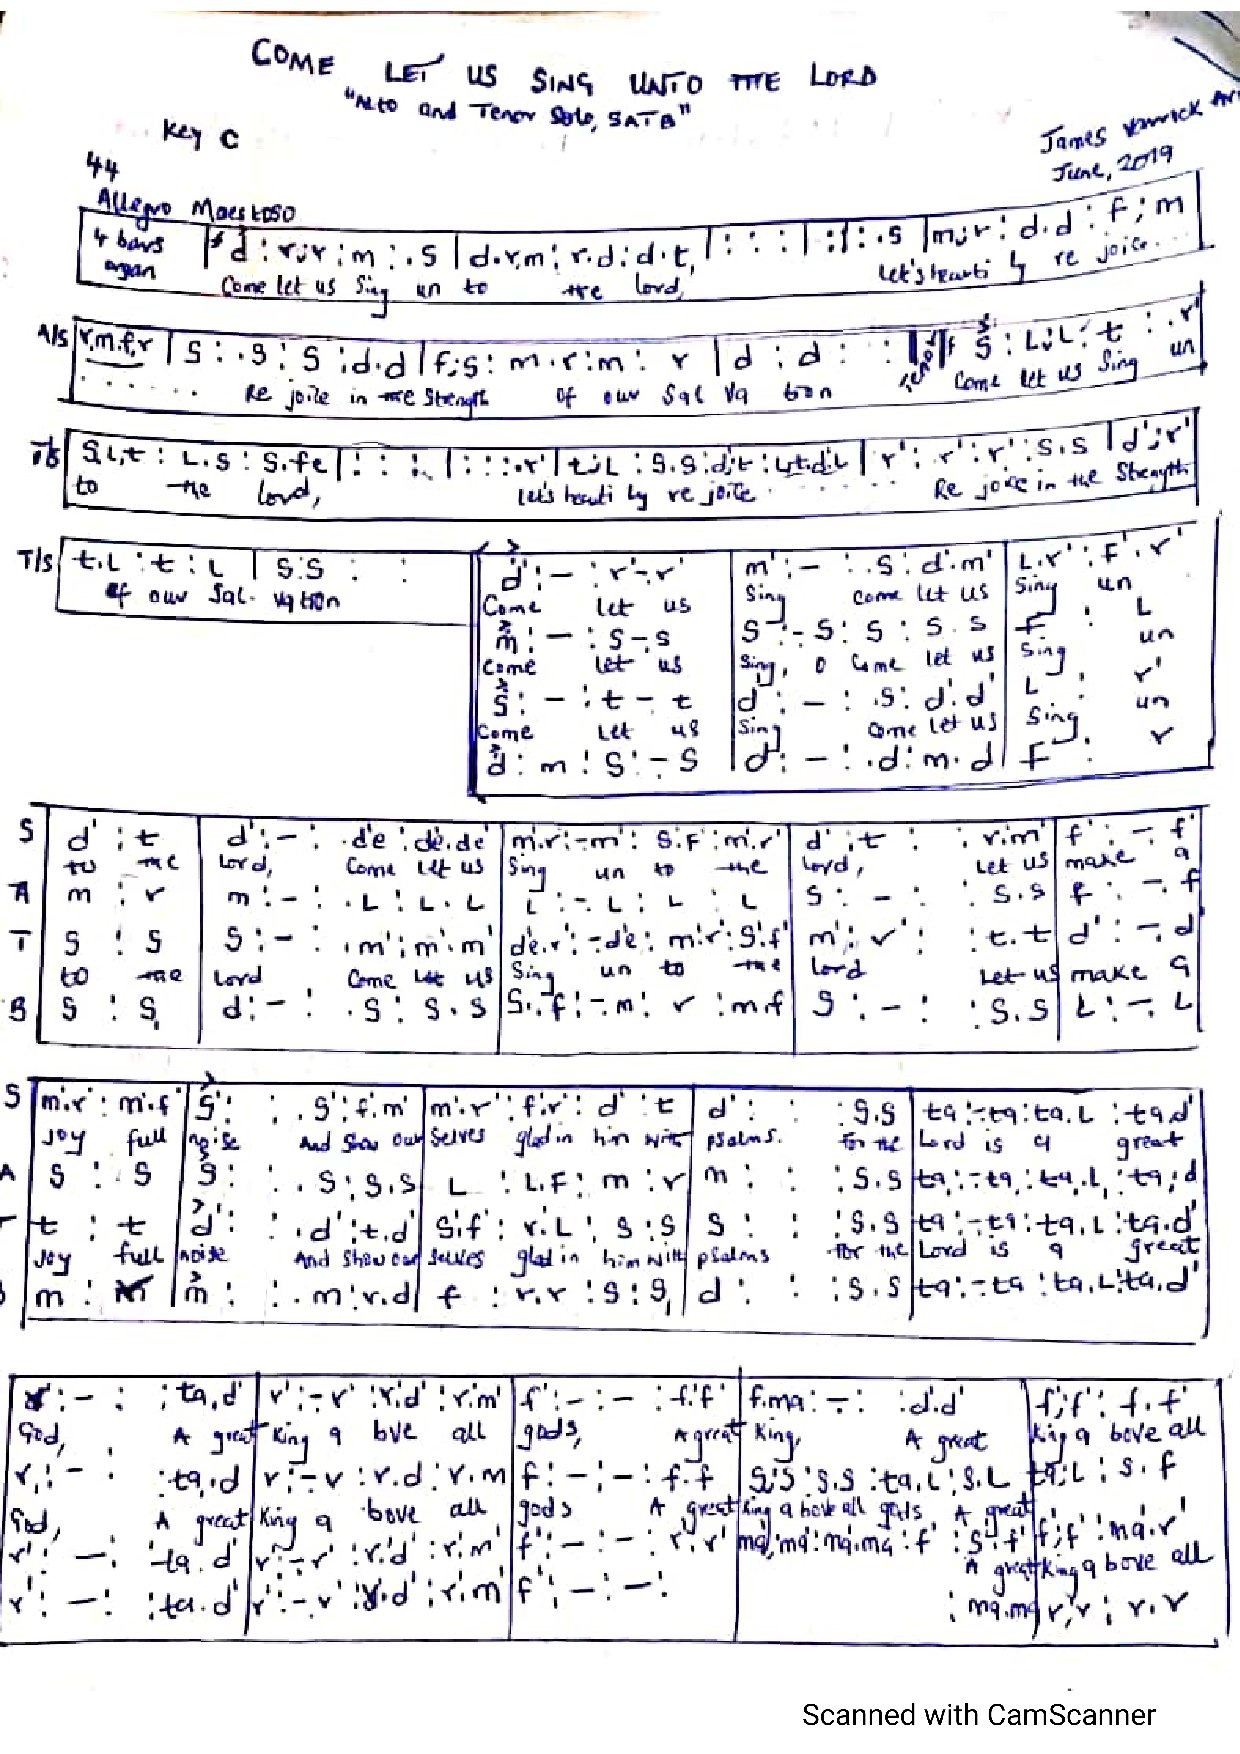 COME LET US SING UNTO THE LORD
"Alto and Tenor Solo, SATB"
Key C
James
June, 2019
44
Allegro Maestoso
4 bars organ | d : r.,r : m : .s | d.r,m : r.d : d.t, | : : : | : : : .s | m.,r : d.d : f.,m
Come let us Sing un to the lord, Let's hearti ly re joice...
A/S r.m.f,r | s : .s : s : d.d | f.,s : m.r : m : r | d : d : : s : L.,L : t : .r'
Re joice in the Strength of our Sal va tion Come let us Sing un
T/S s.L,t : L.s : s.fe | : : : | : : : .r' | t.,L : s.s : d'.,t : L,t.d',L | r' : r' : r' : s.s | d'.,r'
to the lord, let's hearti ly re joice Re joice in the Strength
T/S t.L : t : L | s.s : :
of our Sal vation
d' : - : r' - r' | m' : - : .s : d'.m' | L.r' : f'.r'
Come let us Sing come let us Sing un
m : - : s - s | s : -.s : s : s.s | f : L
Come let us Sing, O Come let us Sing un
s : - : t - t | d' : - : .s : d'.d' | L : r'
Come let us Sing Come let us Sing un
d : m : s : - s | d' : - : .d : m.d | f : r
S d' : t | d' : - : .de' : de'.de' | m'.r' : -.m' : s'.f' : m'.r' | d' : t : : r'.m' | f' : -. f'
to the lord, Come let us Sing un to the lord, let us make a
A m : r | m : - : .L : L.L | L : -.L : L : L | s : - : : s.s | f : -. f
T s : s | s : - : .m' : m'.m' | de'.r' : -.de' : m'.r' : s'.f' | m' : r' : : t.t | d' : -. d'
to the lord Come let us Sing un to the lord let us make a
B s : s, | d : - : .s : s.s | s.f : -.m : r : m.f | s : - : : s.s | L : -. L
S m'.r' : m'.f' | s' : : .s' : f'.m' | m'.r' : f'.r' : d' : t | d' : : : s.s | ta : -.ta : ta.L : ta.d'
Joy full noise And show our selves glad in him with psalms. For the Lord is a great
A s : s | s : : .s : s.s | L : L.f : m : r | m : : : s.s | ta, : -.ta, : ta,.L, : ta,.d
t : t | d' : : .d' : t.d' | s'.f' : r'.L : s : s | s : : : s.s | ta : -.ta : ta.L : ta.d'
Joy full noise And show our selves glad in him with psalms for the Lord is a great
m : | m : : .m : r.d | f : r.r : s : s, | d : : : s.s | ta : -.ta : ta.L : ta.d'
r' : - : : ta.d' | r' : -.r' : r'.d' : r'.m' | f' : - : - : f'.f' | f'.ma' : - : : d'.d' | f'.,f' : f'.f'
God, A great King a bve all gods, A great King, A great King a bove all
r : - : : ta,.d | r : -.r : r.d : r.m | f : - : - : f.f | s.,s : s.s : ta.L : s.L | ta.,L : s.f
God, A great King a bove all gods A great King a bove all gods, A great
r' : - : : ta.d' | r' : -.r' : r'.d' : r'.m' | f' : - : - : r'.r' | ma'.,ma' : ma'.ma' : f' : s'.f' | f'.,f' : ma'.r'
A great King a bove all
r' : - : : ta.d' | r' : -.r' : r'.d' : r'.m' | f' : - : - : | : ma.ma | r.,r : r.r
Scanned with CamScanner